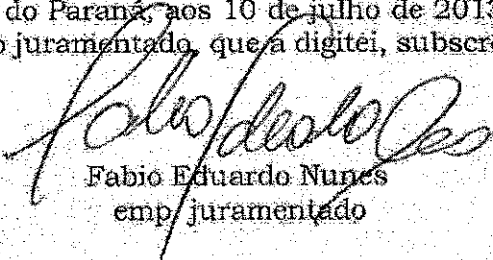 do Paraná, aos 10 de julho de 2013
o juramentado, que a digitei, subscre
Fabio Eduardo Nunes
emp/juramentado